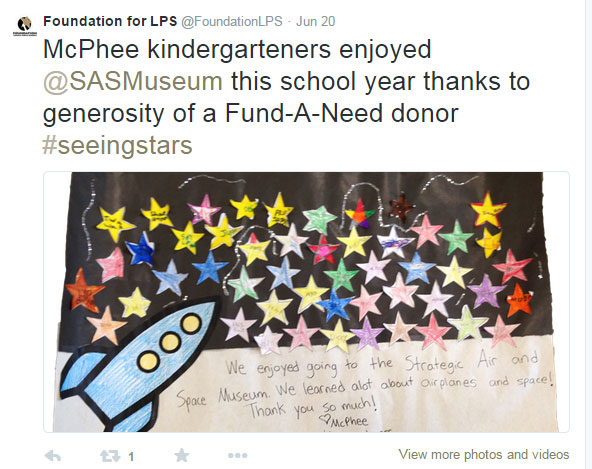 Foundation for LPS @FoundationLPS · Jun 20
McPhee kindergarteners enjoyed
@SASMuseum this school year thanks to
generosity of a Fund-A-Need donor
#seeingstars
We enjoyed going to the Strategic Air and
Space Museum. We learned alot about airplanes and space!
Thank you so much!
♡McPhee
1
View more photos and videos